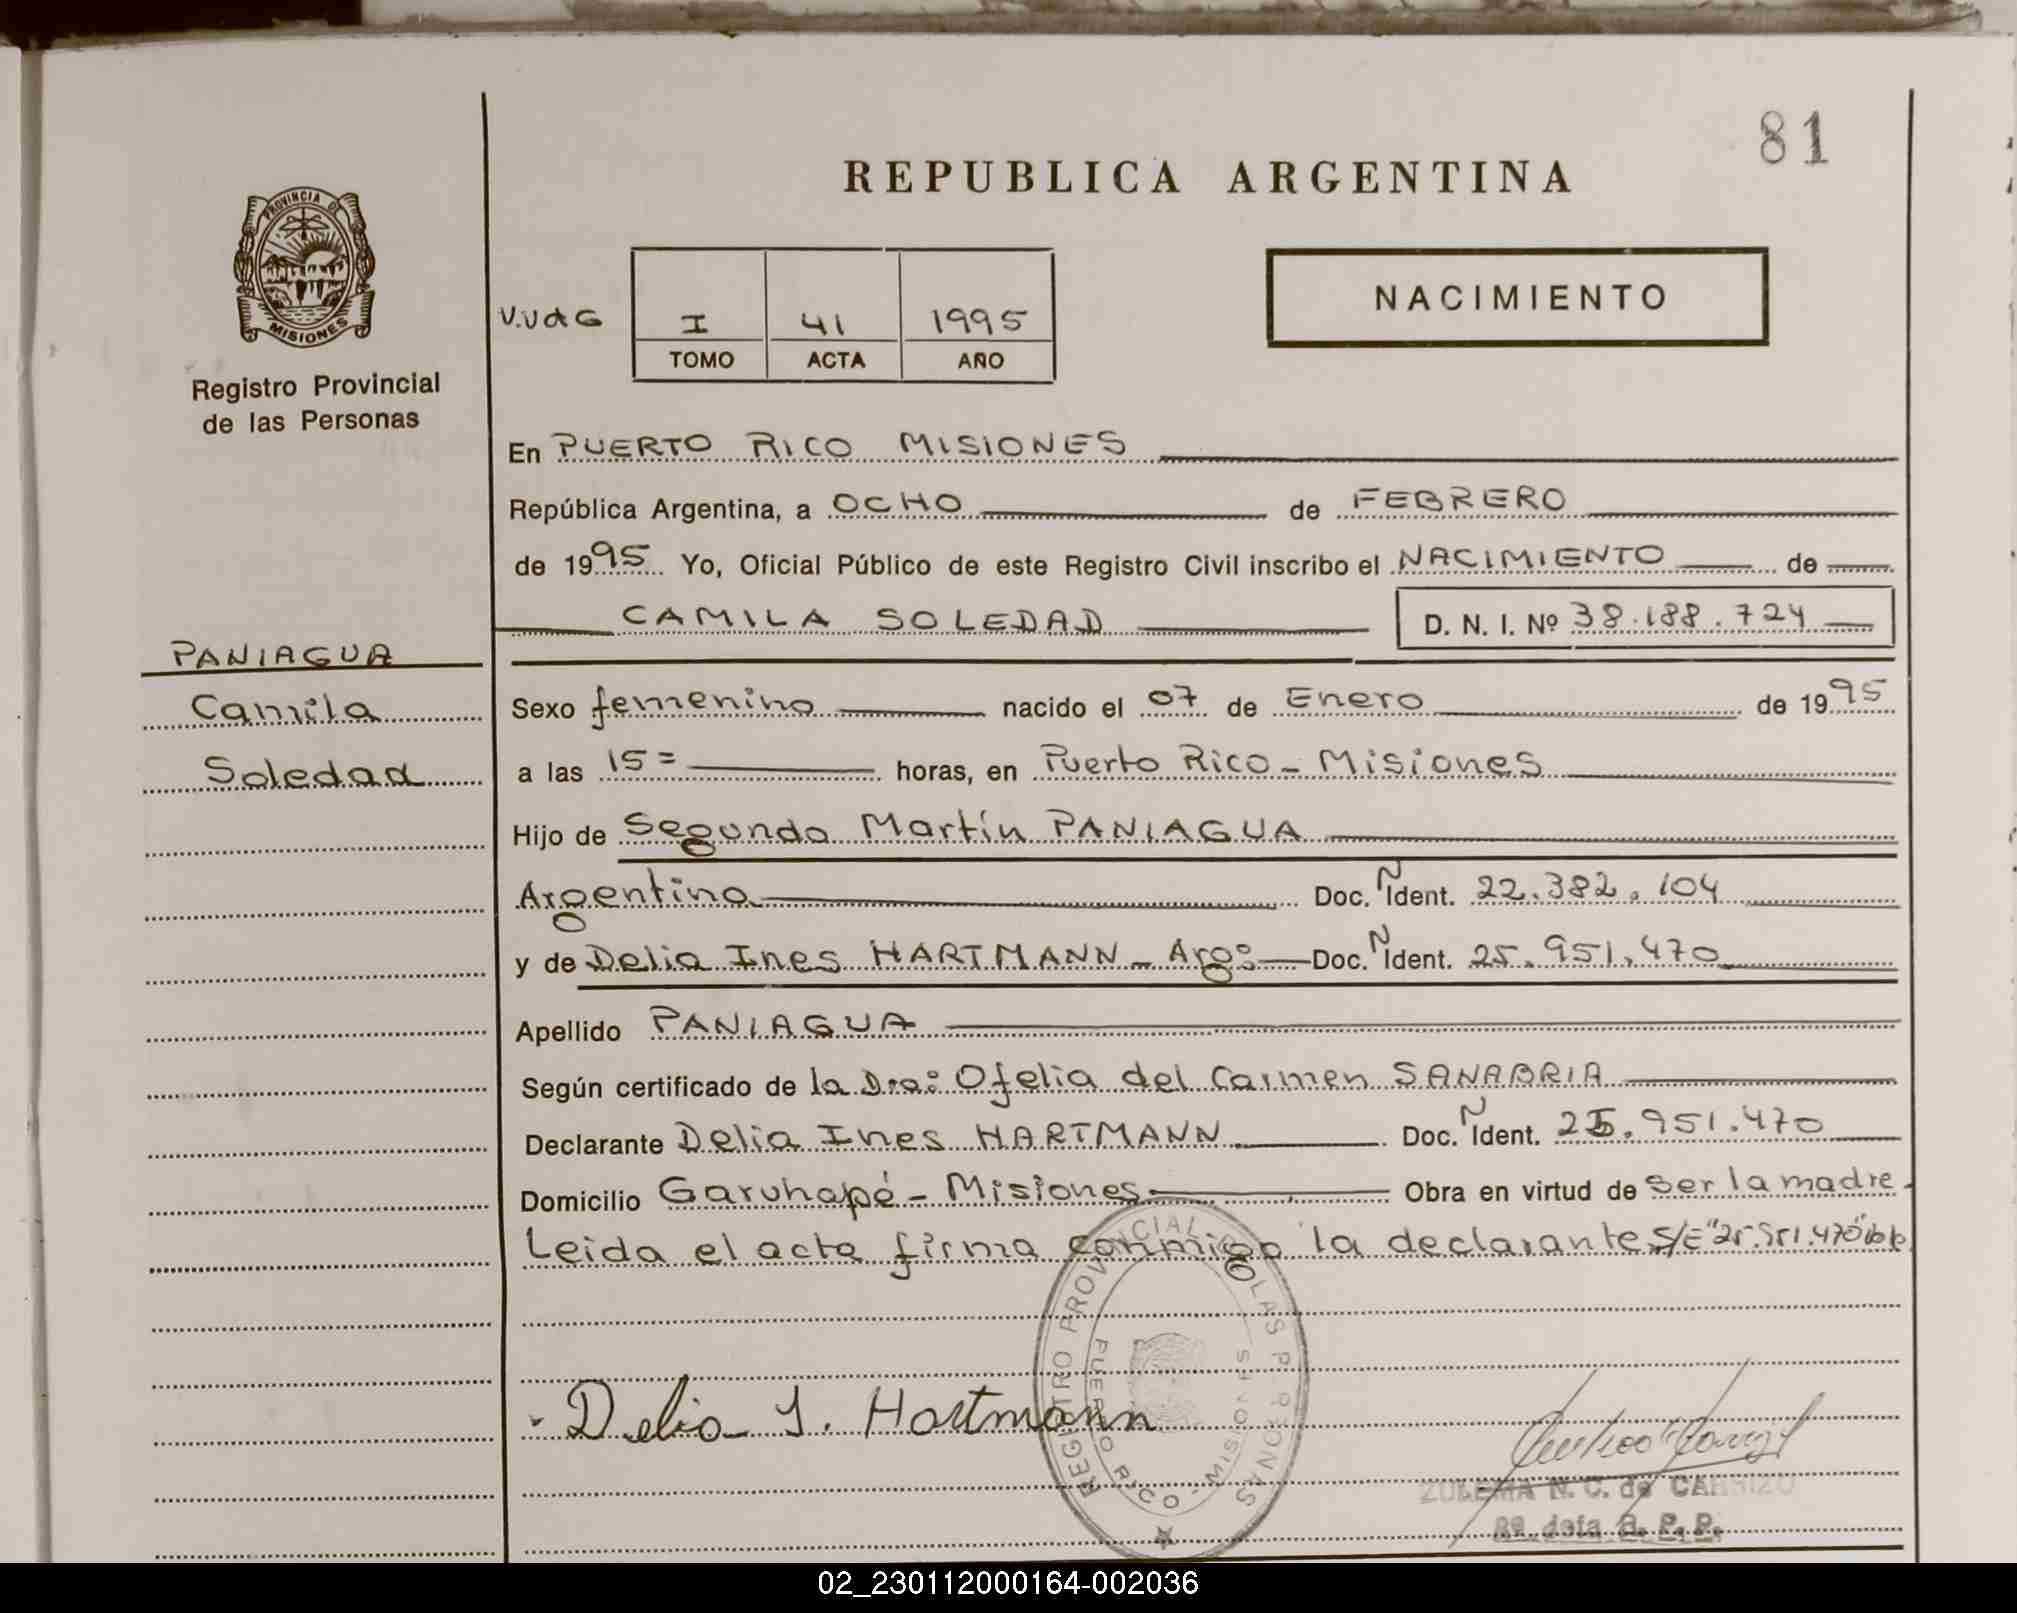 81
REPUBLICA ARGENTINA
PROVINCIA DE
MISIONES
Registro Provincial
de las Personas
I 41 1995
TOMO ACTA AÑO
NACIMIENTO
En PUERTO RICO MISIONES
República Argentina, a OCHO de FEBRERO
de 1995 Yo, Oficial Público de este Registro Civil inscribo el NACIMIENTO de
CAMILA SOLEDAD D. N. I. Nº 38.188.724
PANIAGUA
Camila
Soledad
Sexo femenino nacido el 07 de Enero de 1995
a las 15= horas, en Puerto Rico - Misiones
Hijo de Segundo Martín PANIAGUA
Argentino Doc. N Ident. 22.382.104
y de Delia Ines HARTMANN - Arg: Doc. N Ident. 25.951.470
Apellido PANIAGUA
Según certificado de la Dra: Ofelia del Carmen SANABRIA
Declarante Delia Ines HARTMANN Doc. N Ident. 25.951.470
Domicilio Garuhapé - Misiones Obra en virtud de ser la madre.
Leida el acta firma conmigo la declarante S/E "25.951.470"
REGISTRO PROVINCIAL DE LAS PERSONAS
PUERTO RICO - MISIONES
Delia I. Hartmann
ZULEMA N. C. de CARRIZO
02_230112000164-002036